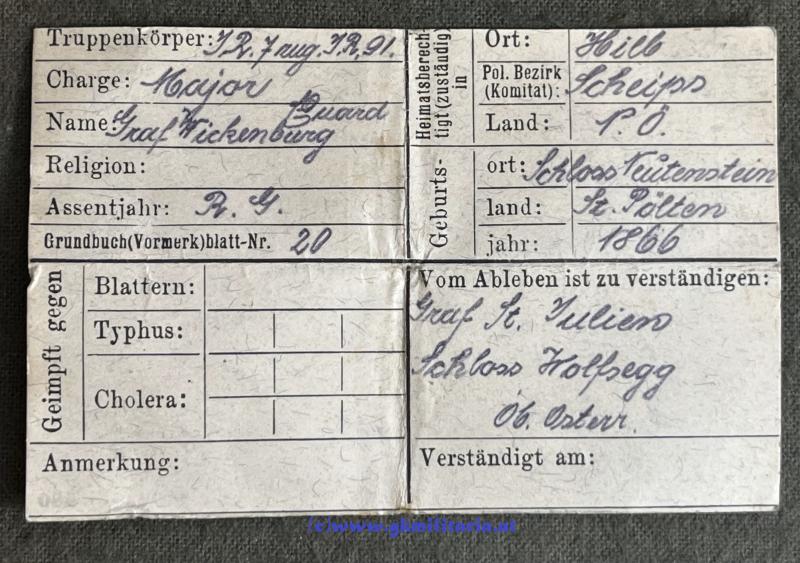 Truppenkörper: I.R. 7 zug. I.R. 91.
Charge: Major
Name: Graf Wickenburg Eduard
Religion:
Assentjahr: R. G.
Grundbuch(Vormerk)blatt-Nr. 20
Heimatsberech-
tigt (zuständig)
in
Ort: Hilb
Pol. Bezirk
(Komitat): Scheips
Land: N. Ö.
Geburts-
ort: Schloss Neutenstein
land: St. Pölten
jahr: 1866
Geimpft gegen
Blattern:
Typhus:
Cholera:
Anmerkung:
Vom Ableben ist zu verständigen:
Graf St. Julien
Schloss Wolfsegg
Ob. Österr.
Verständigt am:
(c)www.gkmilitoria.at